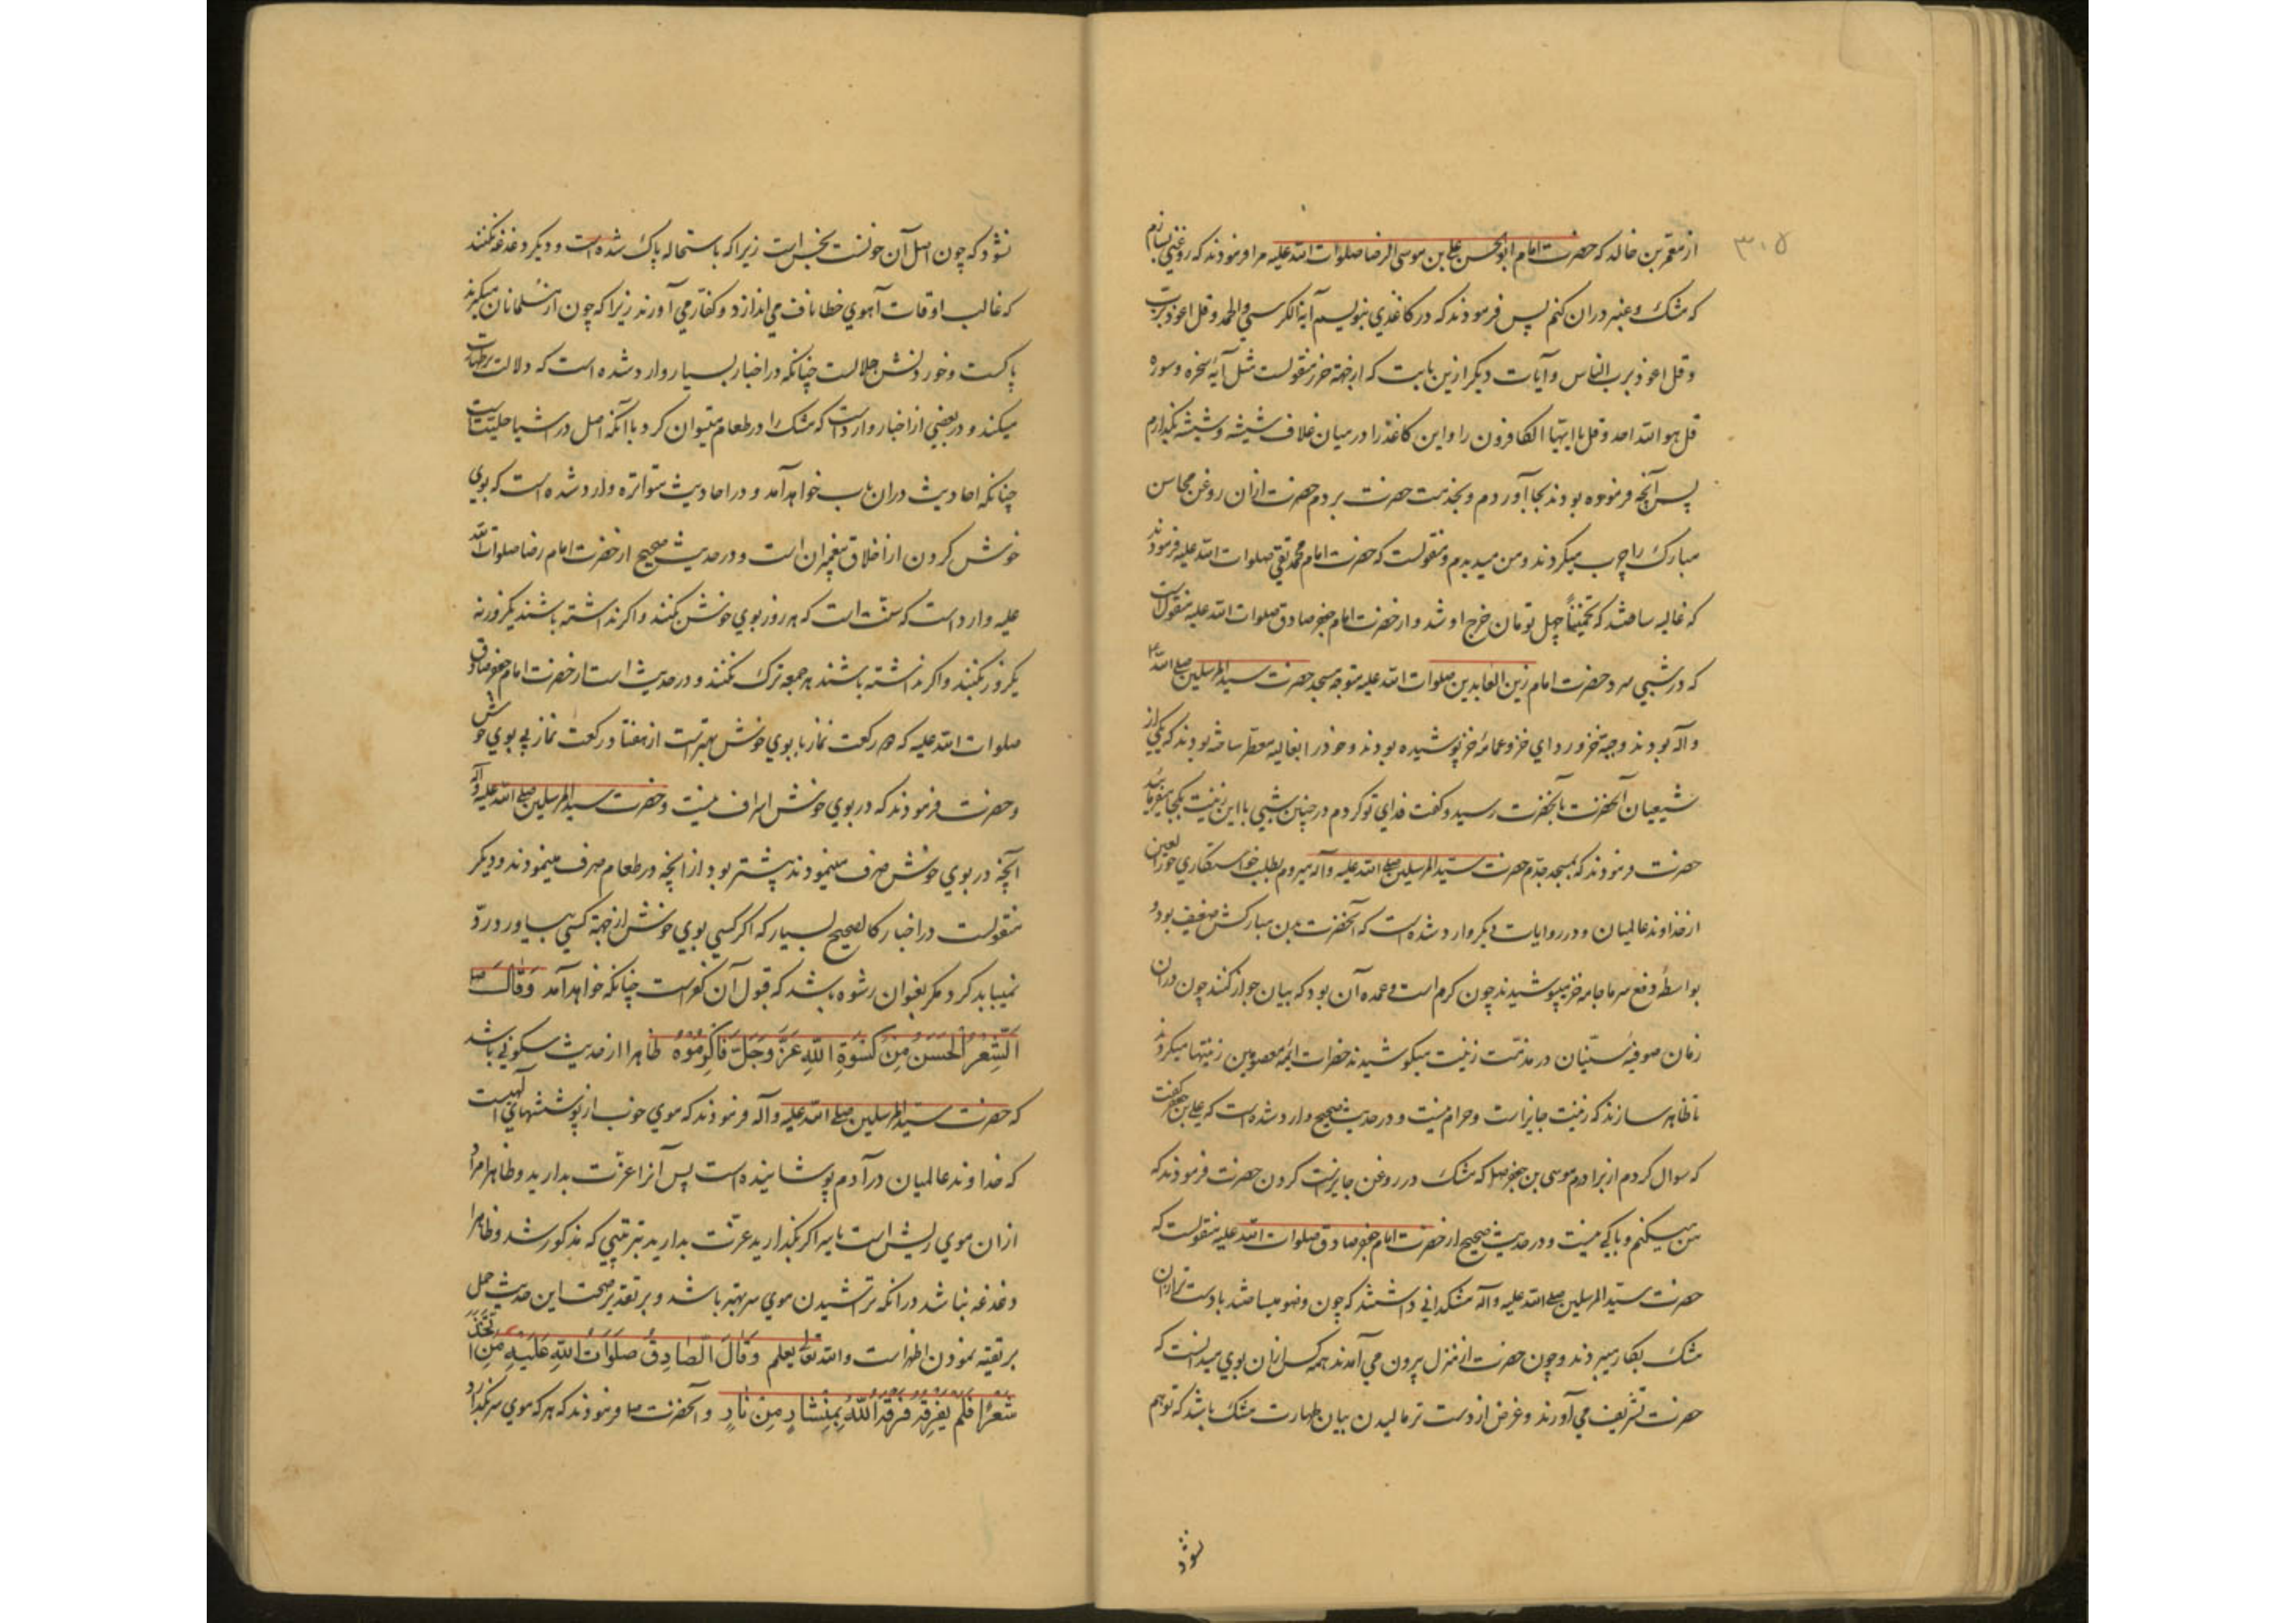 ۳۰۵
از معمر بن خالد که حضرت امام ابو الحسن علی بن موسی الرضا صلوات الله علیه مرا فرمودند که روغنی بسازم
که مشک و عنبر دران کنم پس فرمودند که در کاغذی بنویسم آیة الکرسی و الحمد و قل اعوذ برب
و قل اعوذ برب الناس و آیات دیگر ازین بابت که از جهة حرز منقولست مثل آیهٔ سخره و سوره
قل هو الله احد و قل یا ایها الکافرون را و این کاغذ را در میان غلاف شیشه و شیشه بگذارم
پس آنچه فرموده بودند بجا آوردم و بخدمت حضرت بردم حضرت ازان روغن محاسن
مبارک را چرب میکردند و من میدیدم و منقولست که حضرت امام محمد تقی صلوات الله علیه فرمودند
که غالیه ساختند که تخمیناً چهل تومان خرج او شد و از حضرت امام جعفر صادق صلوات الله علیه منقول است
که در شبی سرد حضرت امام زین العابدین صلوات الله علیه متوجه مسجد حضرت سید المرسلین صلی الله علیه
و آله بودند و جبهٔ خز و ردای خز و عمامهٔ خز پوشیده بودند و خود را بغالیه معطر ساخته بودند که یکی از
شیعیان آنحضرت بآنحضرت رسید و گفت فدای تو گردم در چنین شبی با این زینت بکجا میفرمائید
حضرت فرمودند که بمسجد جدم حضرت سید المرسلین صلی الله علیه و آله میروم بطلب خواستگاری حور العین
از خداوند عالمیان و در روایات دیگر وارد شده است که آنحضرت بدن مبارکش ضعیف بود و
بواسطهٔ دفع سرما جامه خز میپوشیدند چون گرم است و عمده آن بود که بیان جواز کنند چون دران
زمان صوفیهٔ سنیان در مذمت زینت میکوشیدند حضرات ائمه معصومین زینتها میکردند
تا ظاهر سازند که زینت جایز است و حرام نیست و در حدیث صحیح وارد شده است که علی بن جعفر گفت
که سوال کردم از برادرم موسی بن جعفر صلا که مشک در روغن جایز است کردن حضرت فرمودند که
من میکنم و باکی نیست و در حدیث صحیح از حضرت امام جعفر صادق صلوات الله علیه منقولست که
حضرت سید المرسلین صلی الله علیه و آله مشکدانی داشتند که چون وضو میساختند با دست تر ازان
مشک بکار میبردند و چون حضرت از منزل بیرون می آمدند همه کس ازان بوی میدانست که
حضرت تشریف می آورند و غرض از دست تر مالیدن بیان طهارت مشک باشد که توهم
نشود
نشود که چون اصل آن خونست نجس است زیرا که باستحاله پاک شده است و دیگر دغدغه نکنند
که غالب اوقات آهوی خطا ناف می اندازد و کفار می آورند زیرا که چون از مسلمانان میگیرند
پاکست و خوردنش حلالست چنانکه در اخبار بسیار وارد شده است که دلالت بر طهارت
میکند و در بعضی از اخبار وارد است که مشک را در طعام میتوان کرد با آنکه اصل در اشیا حلیت است
چنانکه احادیث دران باب خواهد آمد و در احادیث متواتره وارد شده است که بوی
خوش کردن از اخلاق پیغمبران است و در حدیث صحیح از حضرت امام رضا صلوات الله
علیه وارد است که سنت است که هر روز بوی خوش کنند و اگر نداشته باشند یکروز نه
یکروز بکنند و اگر نداشته باشند هر جمعه ترک نکنند و در حدیث است از حضرت امام جعفر صادق
صلوات الله علیه که هر رکعت نماز با بوی خوش بهتر است از هفتاد رکعت نماز بی بوی خوش
و حضرت فرمودند که در بوی خوش اسراف نیست و حضرت سید المرسلین صلی الله علیه و آله
آنچه در بوی خوش صرف مینمودند بیشتر بود از آنچه در طعام صرف مینمودند و دیگر
منقولست در اخبار کالصحیح بسیار که اگر کسی بوی خوش از جهة کسی بیاورد رد
نمیباید کرد مگر بعنوان رشوه باشد که قبول آن کفر است چنانکه خواهد آمد وَقَالَ ص
اَلشَّعْرُ الْحَسَنُ مِنْ كِسْوَةِ اللّهِ عَزَّ وَجَلَّ فَاَكْرِمُوهُ ظاهرا از حدیث سکونی باشد
که حضرت سید المرسلین صلی الله علیه و آله فرمودند که موی خوب از پوششهای آلهیست
که خداوند عالمیان در آدم پوشانیده است پس آنرا عزت بدارید و ظاهرا مراد
ازان موی ریش است یا سر اگر بگذارید عزت بدارید بترتیبی که مذکور شد و ظاهرا
دغدغه نباشد در آنکه تراشیدن موی سر بهتر باشد و بر تقدیر صحت این حدیث حمل
بر تقیه نمودن اظهر است والله تعالی یعلم وَقَالَ الصَّادِقُ صَلَوَاتُ اللّهِ عَلَيْهِ مَنِ اتَّخَذَ
شَعْرًا فَلَمْ يَفْرِقْهُ فَرَقَهُ اللّهُ بِمِنْشَارٍ مِنْ نَارٍ و آنحضرت ص فرمودند که هر که موی سر بگذارد